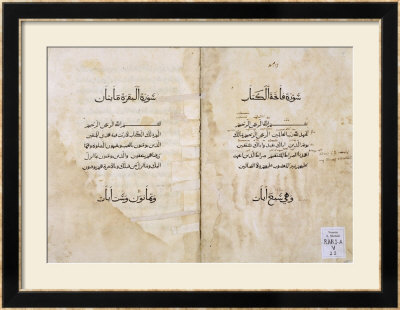 سورة فاتحة الكتاب
بسم الله الرحمن الرحيم
الحمد لله رب العالمين الرحمن الرحيم ملك
يوم الدين اياك نعبد واياك نستعين
اهدنا الصراط المستقيم صراط الذين انعمت
عليهم غير المغضوب عليهم ولا الضالين
وهي سبع آيات
سورة البقرة مائتان
بسم الله الرحمن الرحيم
الم ذلك الكتاب لا ريب فيه هدى للمتقين
الذين يؤمنون بالغيب ويقيمون الصلوة ومما
رزقناهم ينفقون والذين يؤمنون بما انزل
اليك وما انزل من قبلك وبالآخرة هم يوقنون
وثمانون وست آيات